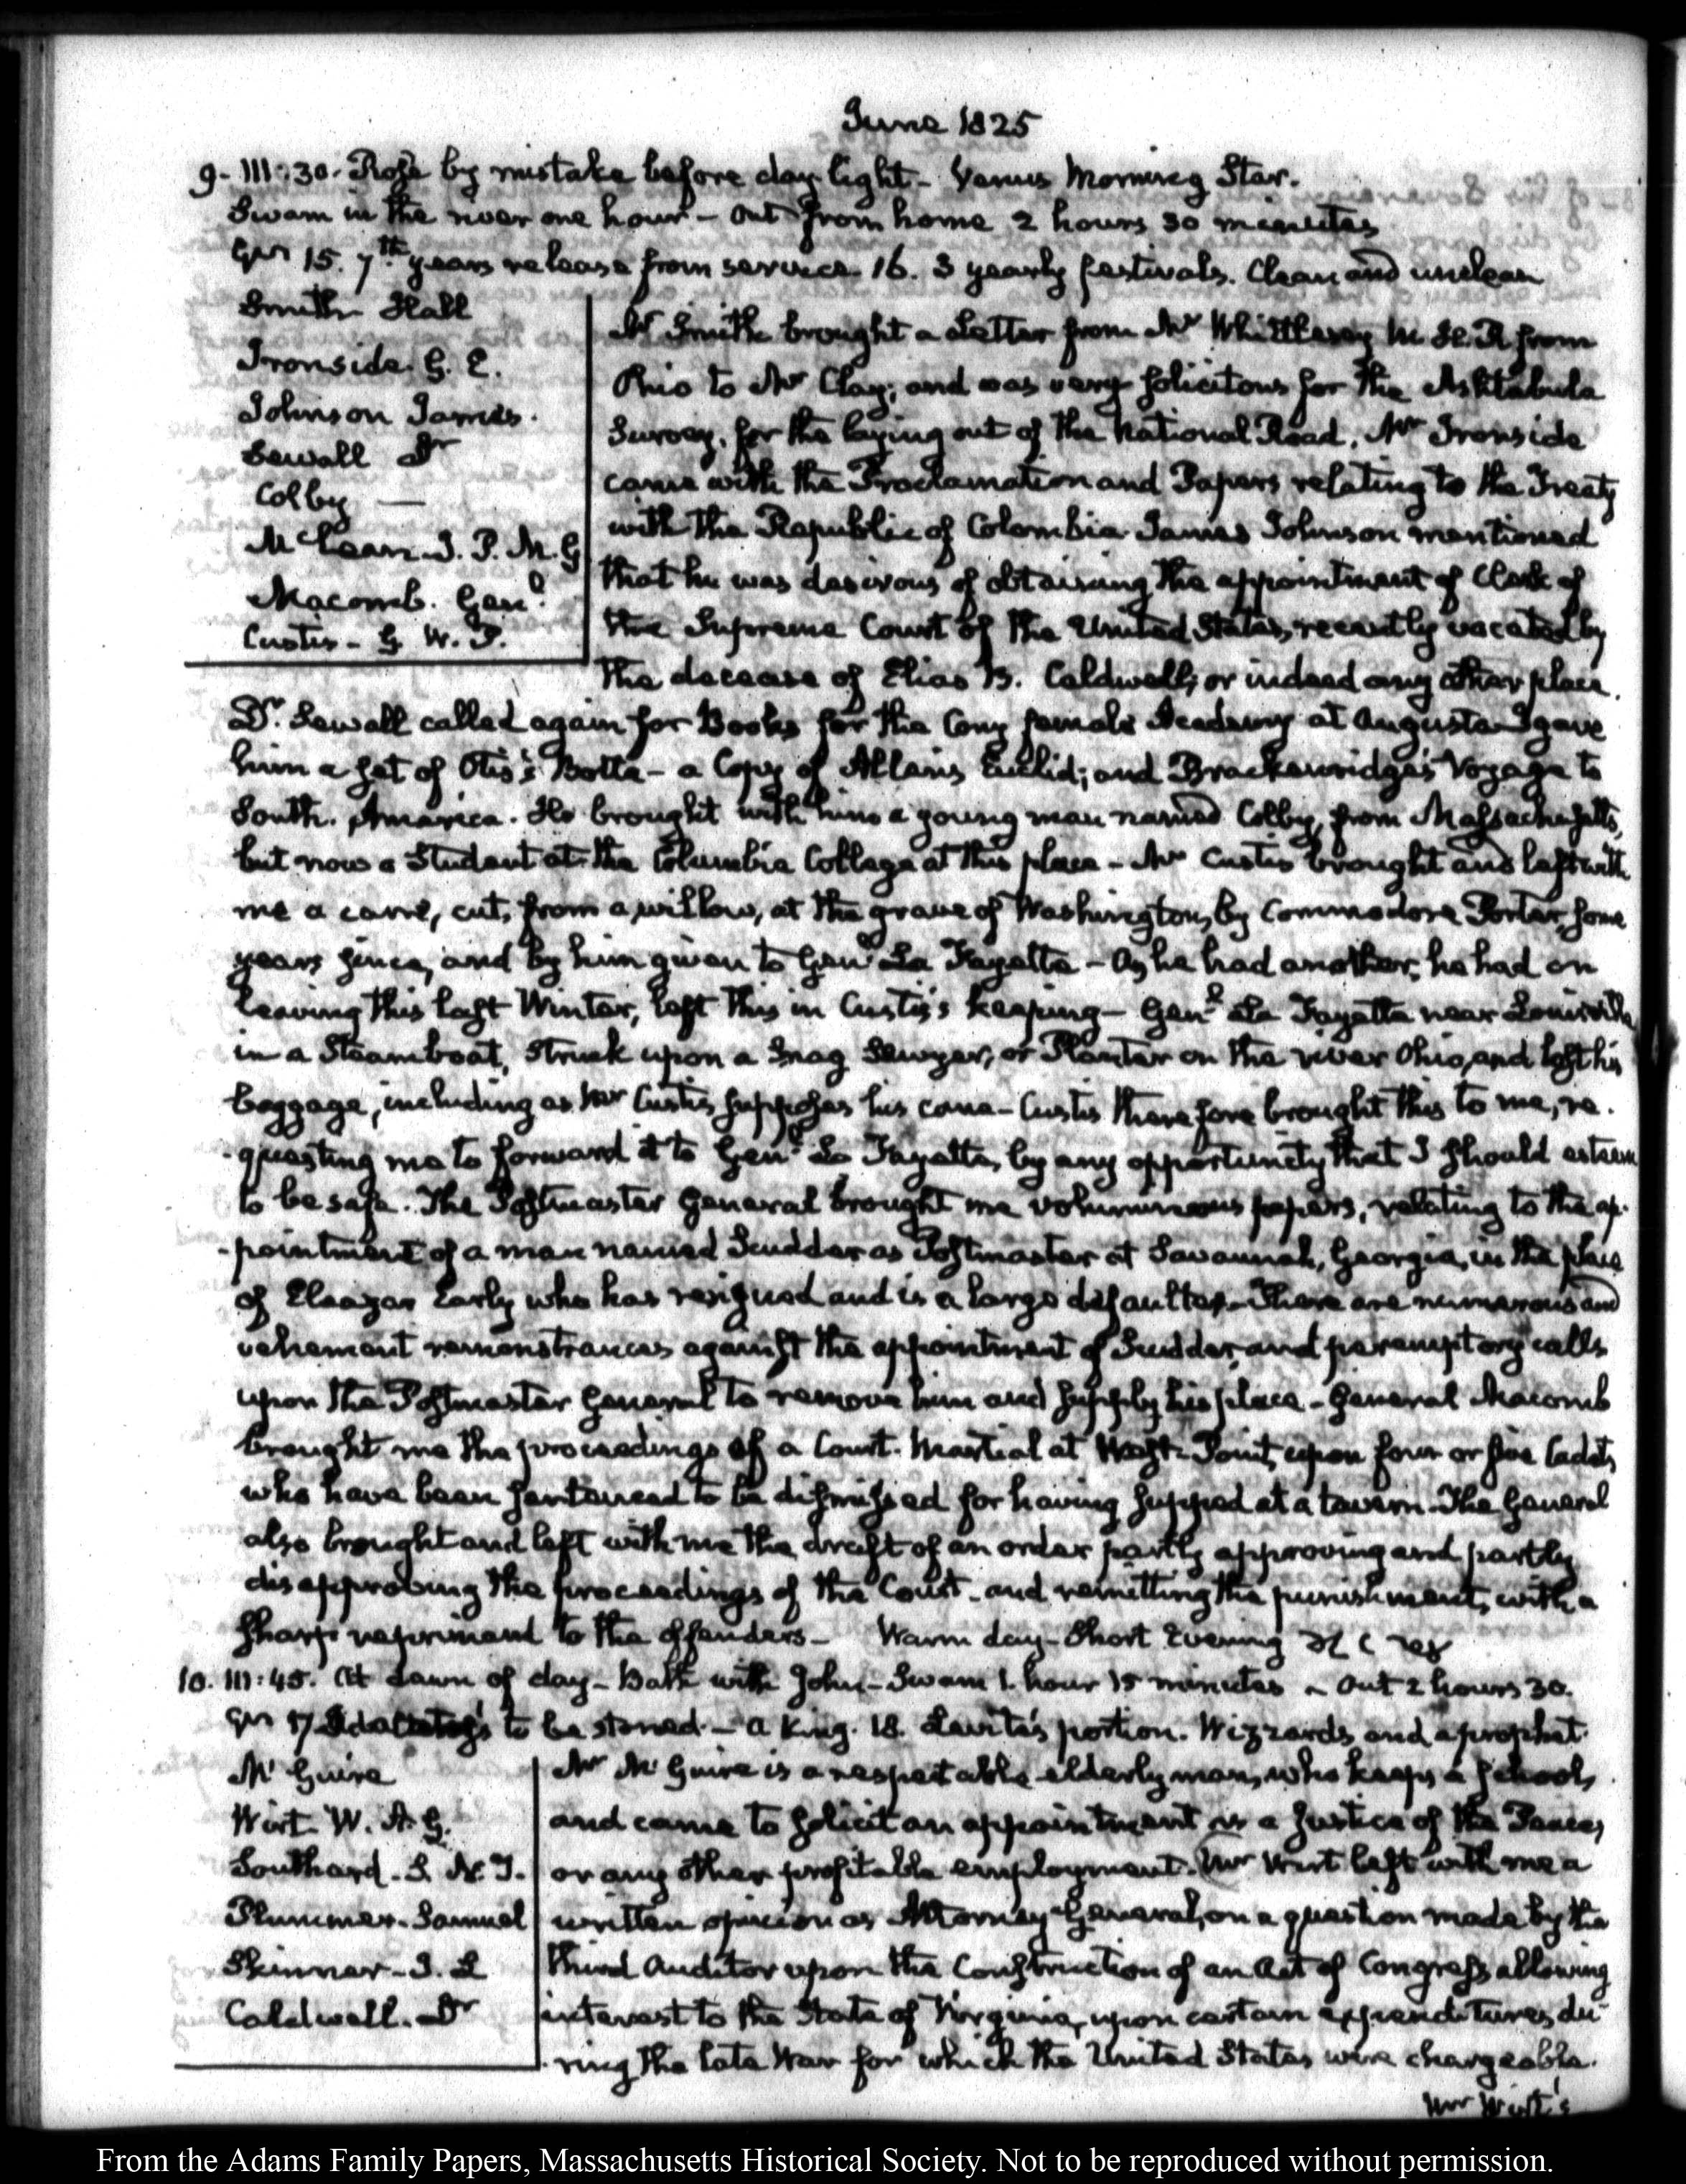 June 1825
9. III:30. Rose by mistake before day light - Venus Morning Star.
Swam in the river one hour - out from home 2 hours 30 minutes
15. 7th. years release from service. 16. 3 yearly festivals. Clean and unclean
Smith Hall
Ironside. G. E.
Johnson James.
Sewall Dr
Colby —
McLean J. P. M. G
Macomb. Genl.
Custis - G. W. P.
Mr Smith brought a Letter from Mr Whittlesey M H. R from
Ohio to Mr Clay; and was very solicitous for the Ashtabula
Survey, for the laying out of the National Road. Mr Ironside
came with the Proclamation and Papers relating to the Treaty
with the Republic of Colombia. James Johnson mentioned
that he was desirous of obtaining the appointment of Clerk of
the Supreme Court of the United States, recently vacated by
the decease of Elias B. Caldwell; or indeed any other place.
Dr. Sewall called again for Books for the Cony female Academy at Augusta. I gave
him a set of Otis's Botta - a Copy of Allen's Euclid; and Brackenridge's Voyage to
South. America. He brought with him a young man named Colby, from Massachusetts,
but now a Student at the Columbia College at this place - Mr Custis brought and left with
me a cane, cut, from a willow, at the grave of Washington, by Commodore Porter, some
years since, and by him given to Genl La Fayette - As he had another, he had on
leaving this last Winter, left this in Custis's keeping - Genl La Fayette near Louisville
in a Steamboat, struck upon a Snag Sawyer, or Planter on the river Ohio, and lost his
baggage, including as Mr Custis supposes his cane - Custis therefore brought this to me, re-
-questing me to forward it to Genl La Fayette, by any opportunity that I should esteem
to be safe. The Postmaster General brought me voluminous papers, relating to the ap-
-pointment of a man named Scudder as Postmaster at Savannah, Georgia, in the place
of Eleazar Early who has resigned and is a large defaulter - There are numerous and
vehement remonstrances against the appointment of Scudder, and peremptory calls
upon the Postmaster General to remove him and supply his place - General Macomb
brought me the proceedings of a Court. Martial at West-Point, upon four or five Cadets,
who have been sentenced to be dismissed for having supped at a tavern - The General
also brought and left with me the draft of an order partly approving and partly
disapproving the proceedings of the Court - and remitting the punishment, with a
sharp reprimand to the offenders - Warm day - Short Evening
10. III:45. At dawn of day - Bath with John - Swam 1. hour 15 minutes - Out 2 hours 30.
17 to be stoned - a King. 18. Levite's portion. Wizzards and a prophet.
Mc Guire
Wirt W. A. G.
Southard. S. N. J.
Plummer. Samuel
Skinner - I. L
Caldwell. Dr
Mr McGuire is a respectable elderly man, who keeps a school,
and came to solicit an appointment as a Justice of the Peace,
or any other profitable employment. Mr Wirt left with me a
written opinion as Attorney General, on a question made by the
third Auditor upon the Construction of an Act of Congress allowing
interest to the State of Virginia, upon certain expenditures du-
-ring the late War for which the United States were chargeable.
Mr Wirt's
From the Adams Family Papers, Massachusetts Historical Society. Not to be reproduced without permission.